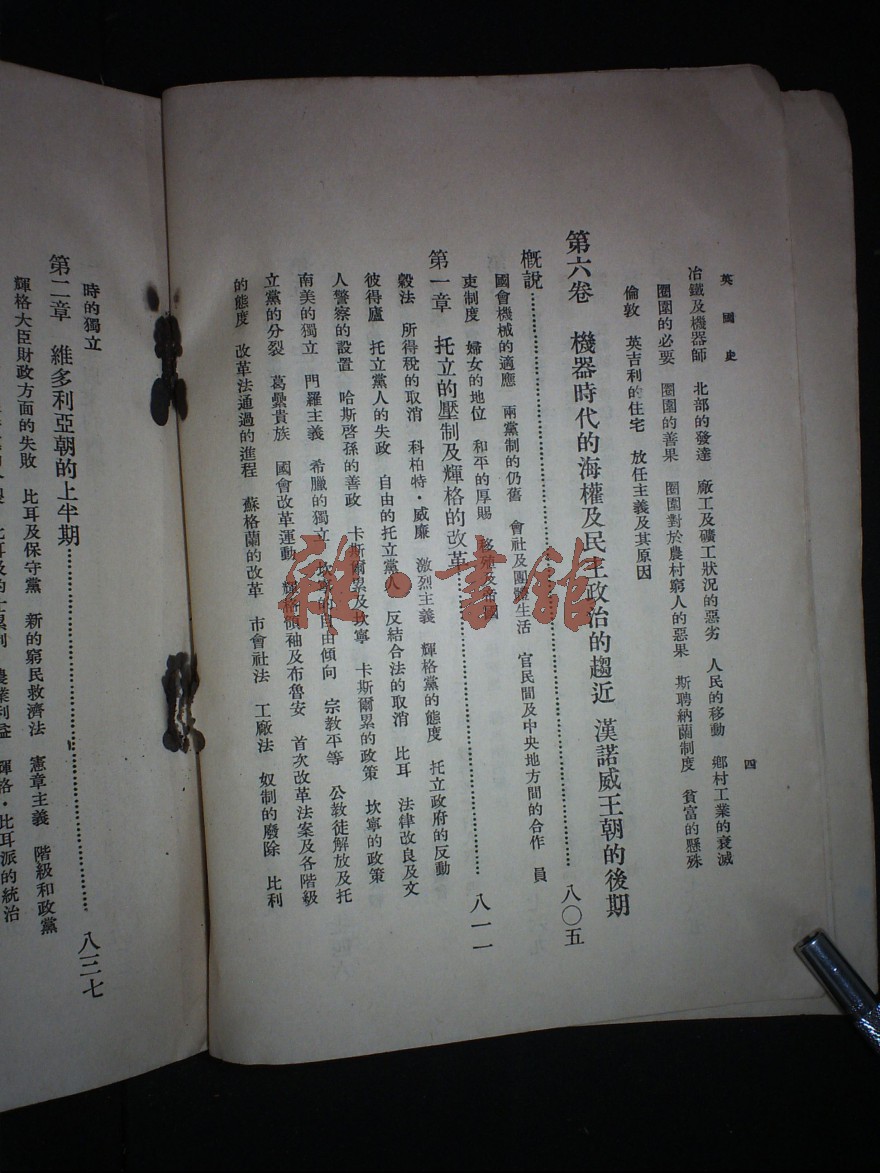 英國史
四
冶鐵及機器師 北部的發達 廠工及礦工狀況的惡劣 人民的移動 鄉村工業的衰滅
圈圍的必要 圈圍的善果 圈圍對於農村窮人的惡果 斯聘納蘭制度 貧富的懸殊
倫敦 英吉利的住宅 放任主義及其原因
第六卷 機器時代的海權及民主政治的趨近 漢諾威王朝的後期
概說……八〇五
國會機械的適應 兩黨制的仍舊 會社及團體生活 官民間及中央地方間的合作 員
吏制度 婦女的地位 和平的厚賜 移殖及帝國
第一章 托立的壓制及輝格的改革……八一一
穀法 所得稅的取消 科柏特·威廉 激烈主義 輝格黨的態度 托立政府的反動
彼得廬 托立黨人的失政 自由的托立黨人 反結合法的取消 比耳 法律改良及文
人警察的設置 哈斯啓孫的善政 卡斯爾累及坎寧 卡斯爾累的政策 坎寧的政策
南美的獨立 門羅主義 希臘的獨立 坎寧的自由傾向 宗教平等 公教徒解放及托
立黨的分裂 葛壘貴族 國會改革運動 輝格領袖及布魯安 首次改革法案及各階級
的態度 改革法通過的進程 蘇格蘭的改革 市會社法 工廠法 奴制的廢除 比利
時的獨立
第二章 維多利亞朝的上半期……八三七
輝格大臣財政方面的失敗 比耳及保守黨 新的窮民救濟法 憲章主義 階級和政黨
輝格·比耳派的統治
雜·書館